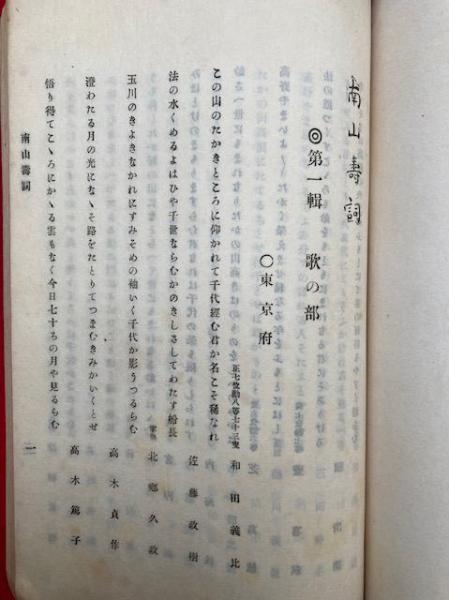 南山壽詞
◎第一輯　歌の部
〇東京府
正七位勳八等七十三叟　和田義比
この山のたかきところに仰かれて千代經む君か名こそ稀なれ
佐藤政樹
法の水くめるよはひや千世ならむかのきしさしてわたす船長
北郷久政
玉川のきよきなかれにすみそめの袖いく千代か影うつるらむ
高木貞作
澄わたる月の光になゝそ路をたとりてつまむきみかいくとせ
高木篤子
悟り得てこゝろにかゝる雲もなく今日七十ろの月や見るらむ
南山壽詞
一